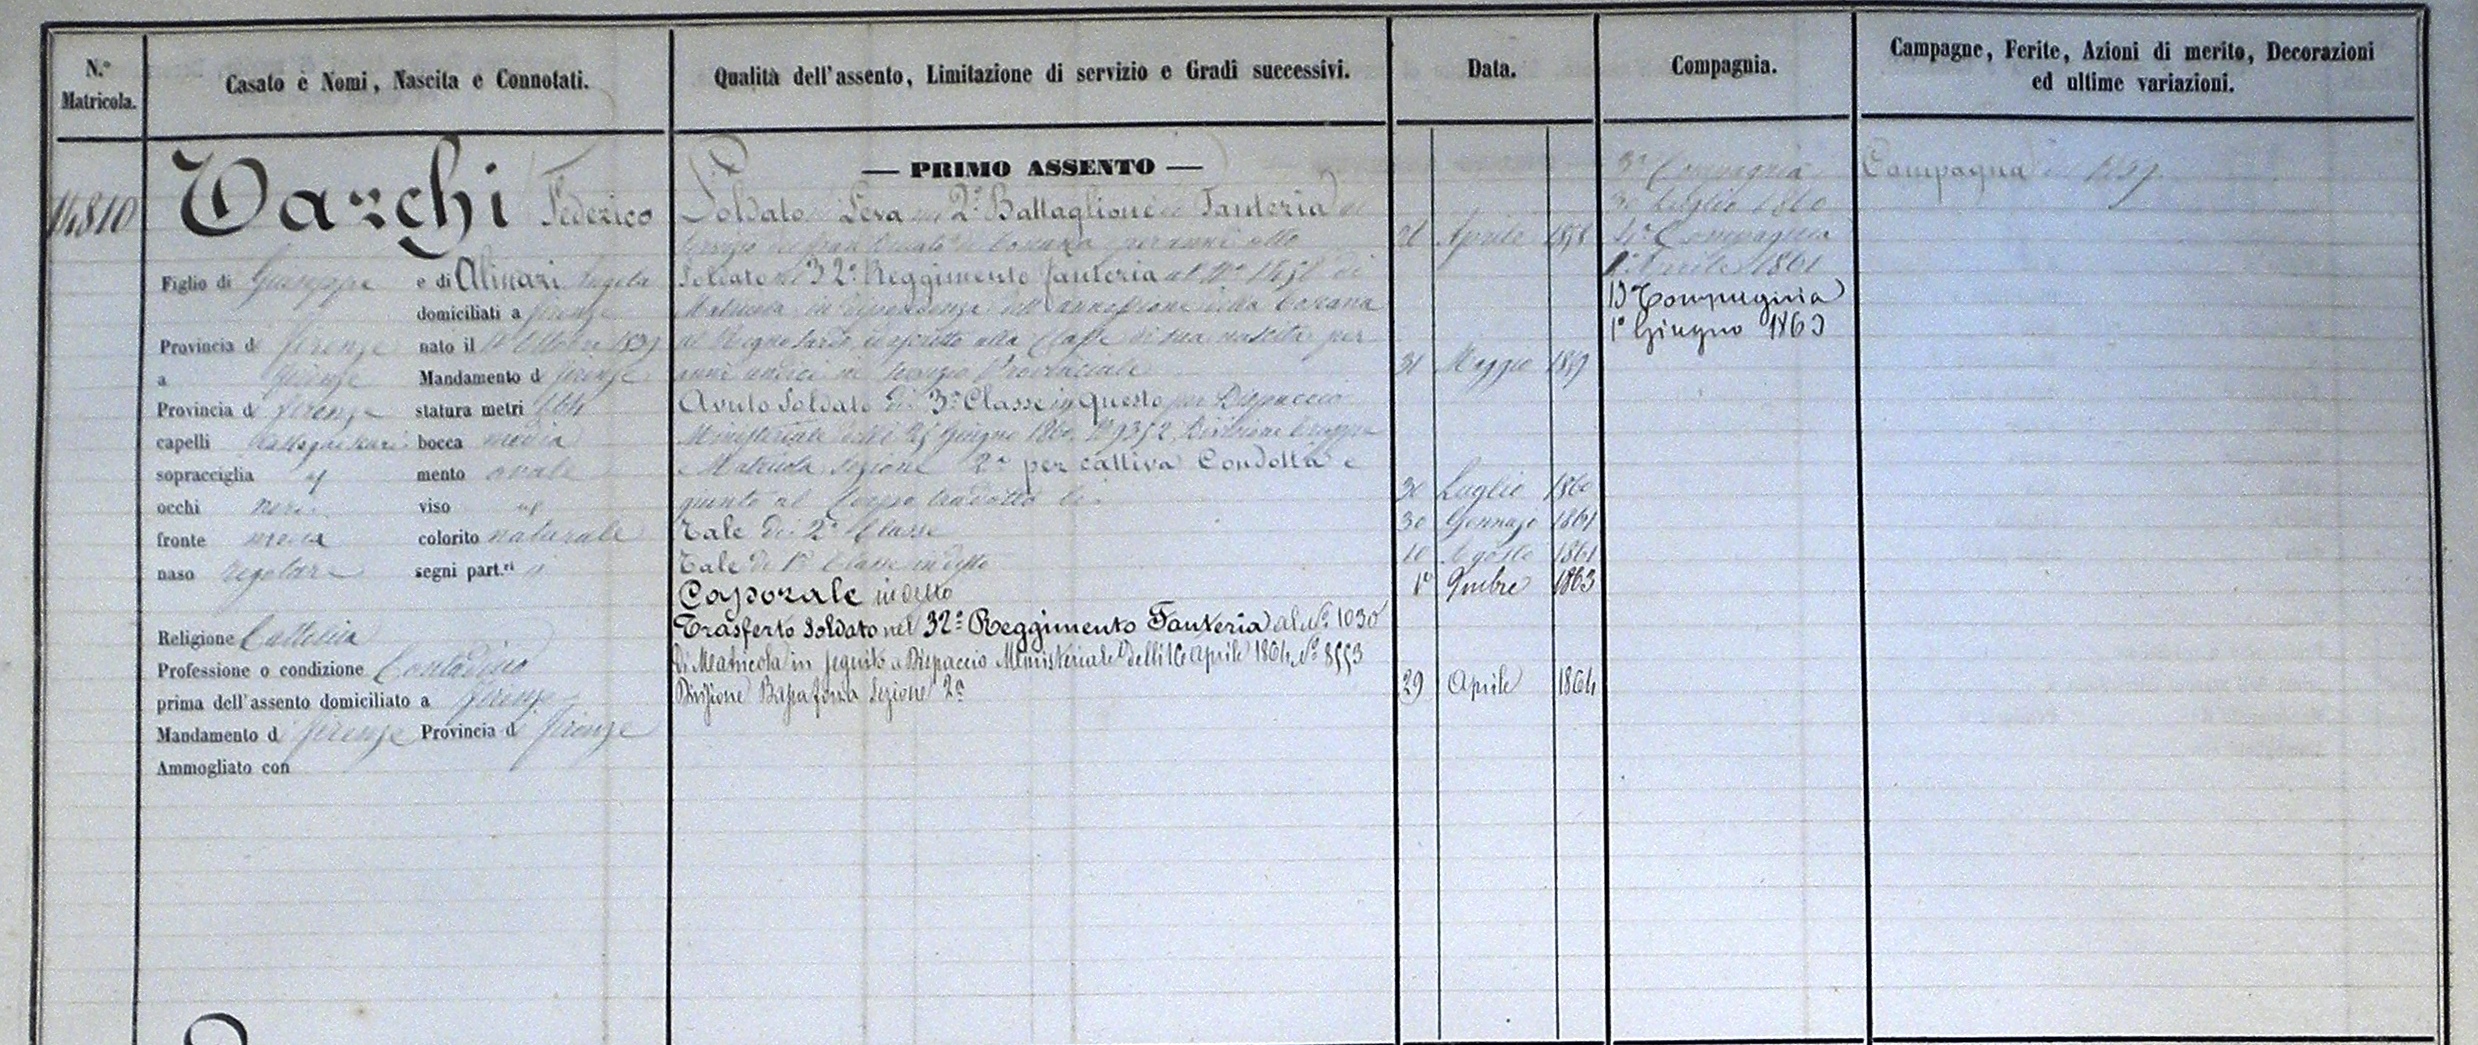 N.º Matricola.
Casato e Nomi, Nascita e Connotati.
Qualità dell'assento, Limitazione di servizio e Gradi successivi.
Data.
Compagnia.
Campagne, Ferite, Azioni di merito, Decorazioni
ed ultime variazioni.
14810
Varchi Federico
Figlio di Giuseppe e di Alinari Angela
domiciliati a Firenze
Provincia di Firenze nato il Ottobre
a Firenze Mandamento di Firenze
Provincia di Firenze statura metri 1.64
capelli bocca media
sopracciglia id mento ovale
occhi neri viso id
fronte media colorito naturale
naso regolare segni part.ri
Religione Cattolica
Professione o condizione Contadino
prima dell'assento domiciliato a Firenze
Mandamento di Firenze Provincia di Firenze
Ammogliato con
— PRIMO ASSENTO —
Soldato Leva nel 2º Battaglione di Fanteria al
servizio del Gran Ducato di Toscana per anni otto
Aprile 1858
Soldato nel 32º Reggimento Fanteria al Nº di
Matricola in dipendenza dell'annessione della Toscana
al Regno Sardo, ed ascritto alla Classe di sua nascita per
anni undici in servizio Provinciale
31 Maggio 1859
Avuto Soldato di 3ª Classe in questo per Dispaccio
Ministeriale delli 25 Giugno 1860, Nº 9352 Divisione Truppa
e Matricola Sezione 2ª per cattiva Condotta e
giunto al Corpo tradotto li
30 Luglio 1860
Tale di 2ª Classe 30 Gennajo 1861
Tale di 1ª Classe in detto 10 Agosto 1861
Caporale in detto 1º 9mbre 1863
Trasferto Soldato nel 32º Reggimento Fanteria al Nº 1030
di Matricola in seguito a Dispaccio Ministeriale delli 16 Aprile 1864 Nº 8553
Divisione Bassa forza Sezione 2ª 29 Aprile 1864
3ª Compagnia
30 Luglio 1860
4ª Compagnia
1º Aprile 1861
Compagnia
1º Giugno 1863
Campagna 1859.